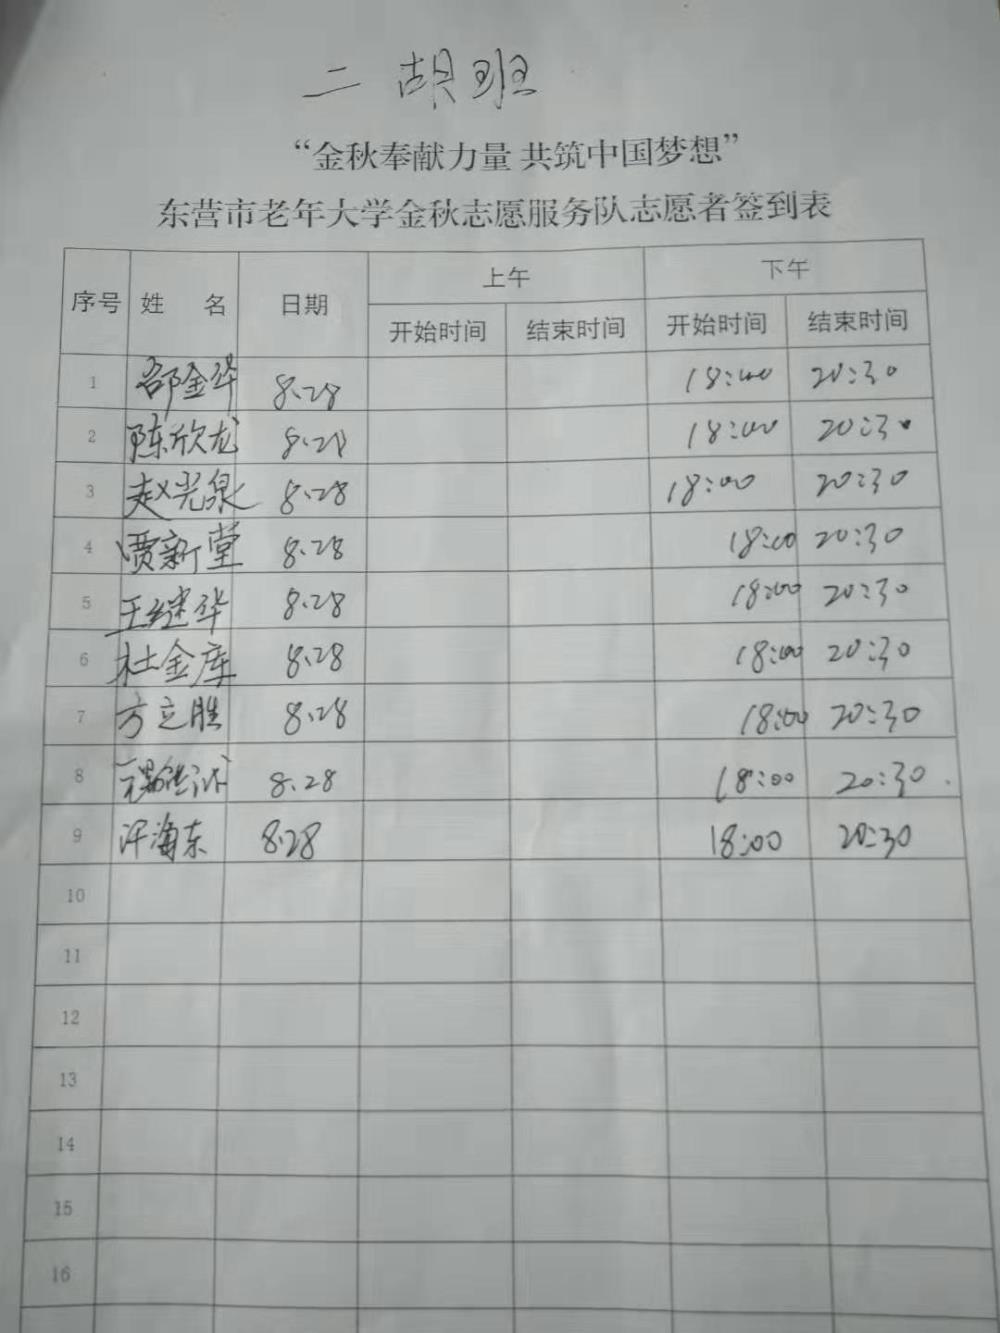 二胡班
“金秋奉献力量 共筑中国梦想”
东营市老年大学金秋志愿服务队志愿者签到表
序号 姓 名 日期 上午 下午
开始时间 结束时间 开始时间 结束时间
1 邵金华 8.28 18:00 20:30
2 陈欣龙 8.28 18:00 20:30
3 赵光泉 8.28 18:00 20:30
4 贾新堂 8.28 18:00 20:30
5 王继华 8.28 18:00 20:30
6 杜金库 8.28 18:00 20:30
7 方立胜 8.28 18:00 20:30
8 8.28 18:00 20:30
9 许海东 8.28 18:00 20:30
10
11
12
13
14
15
16